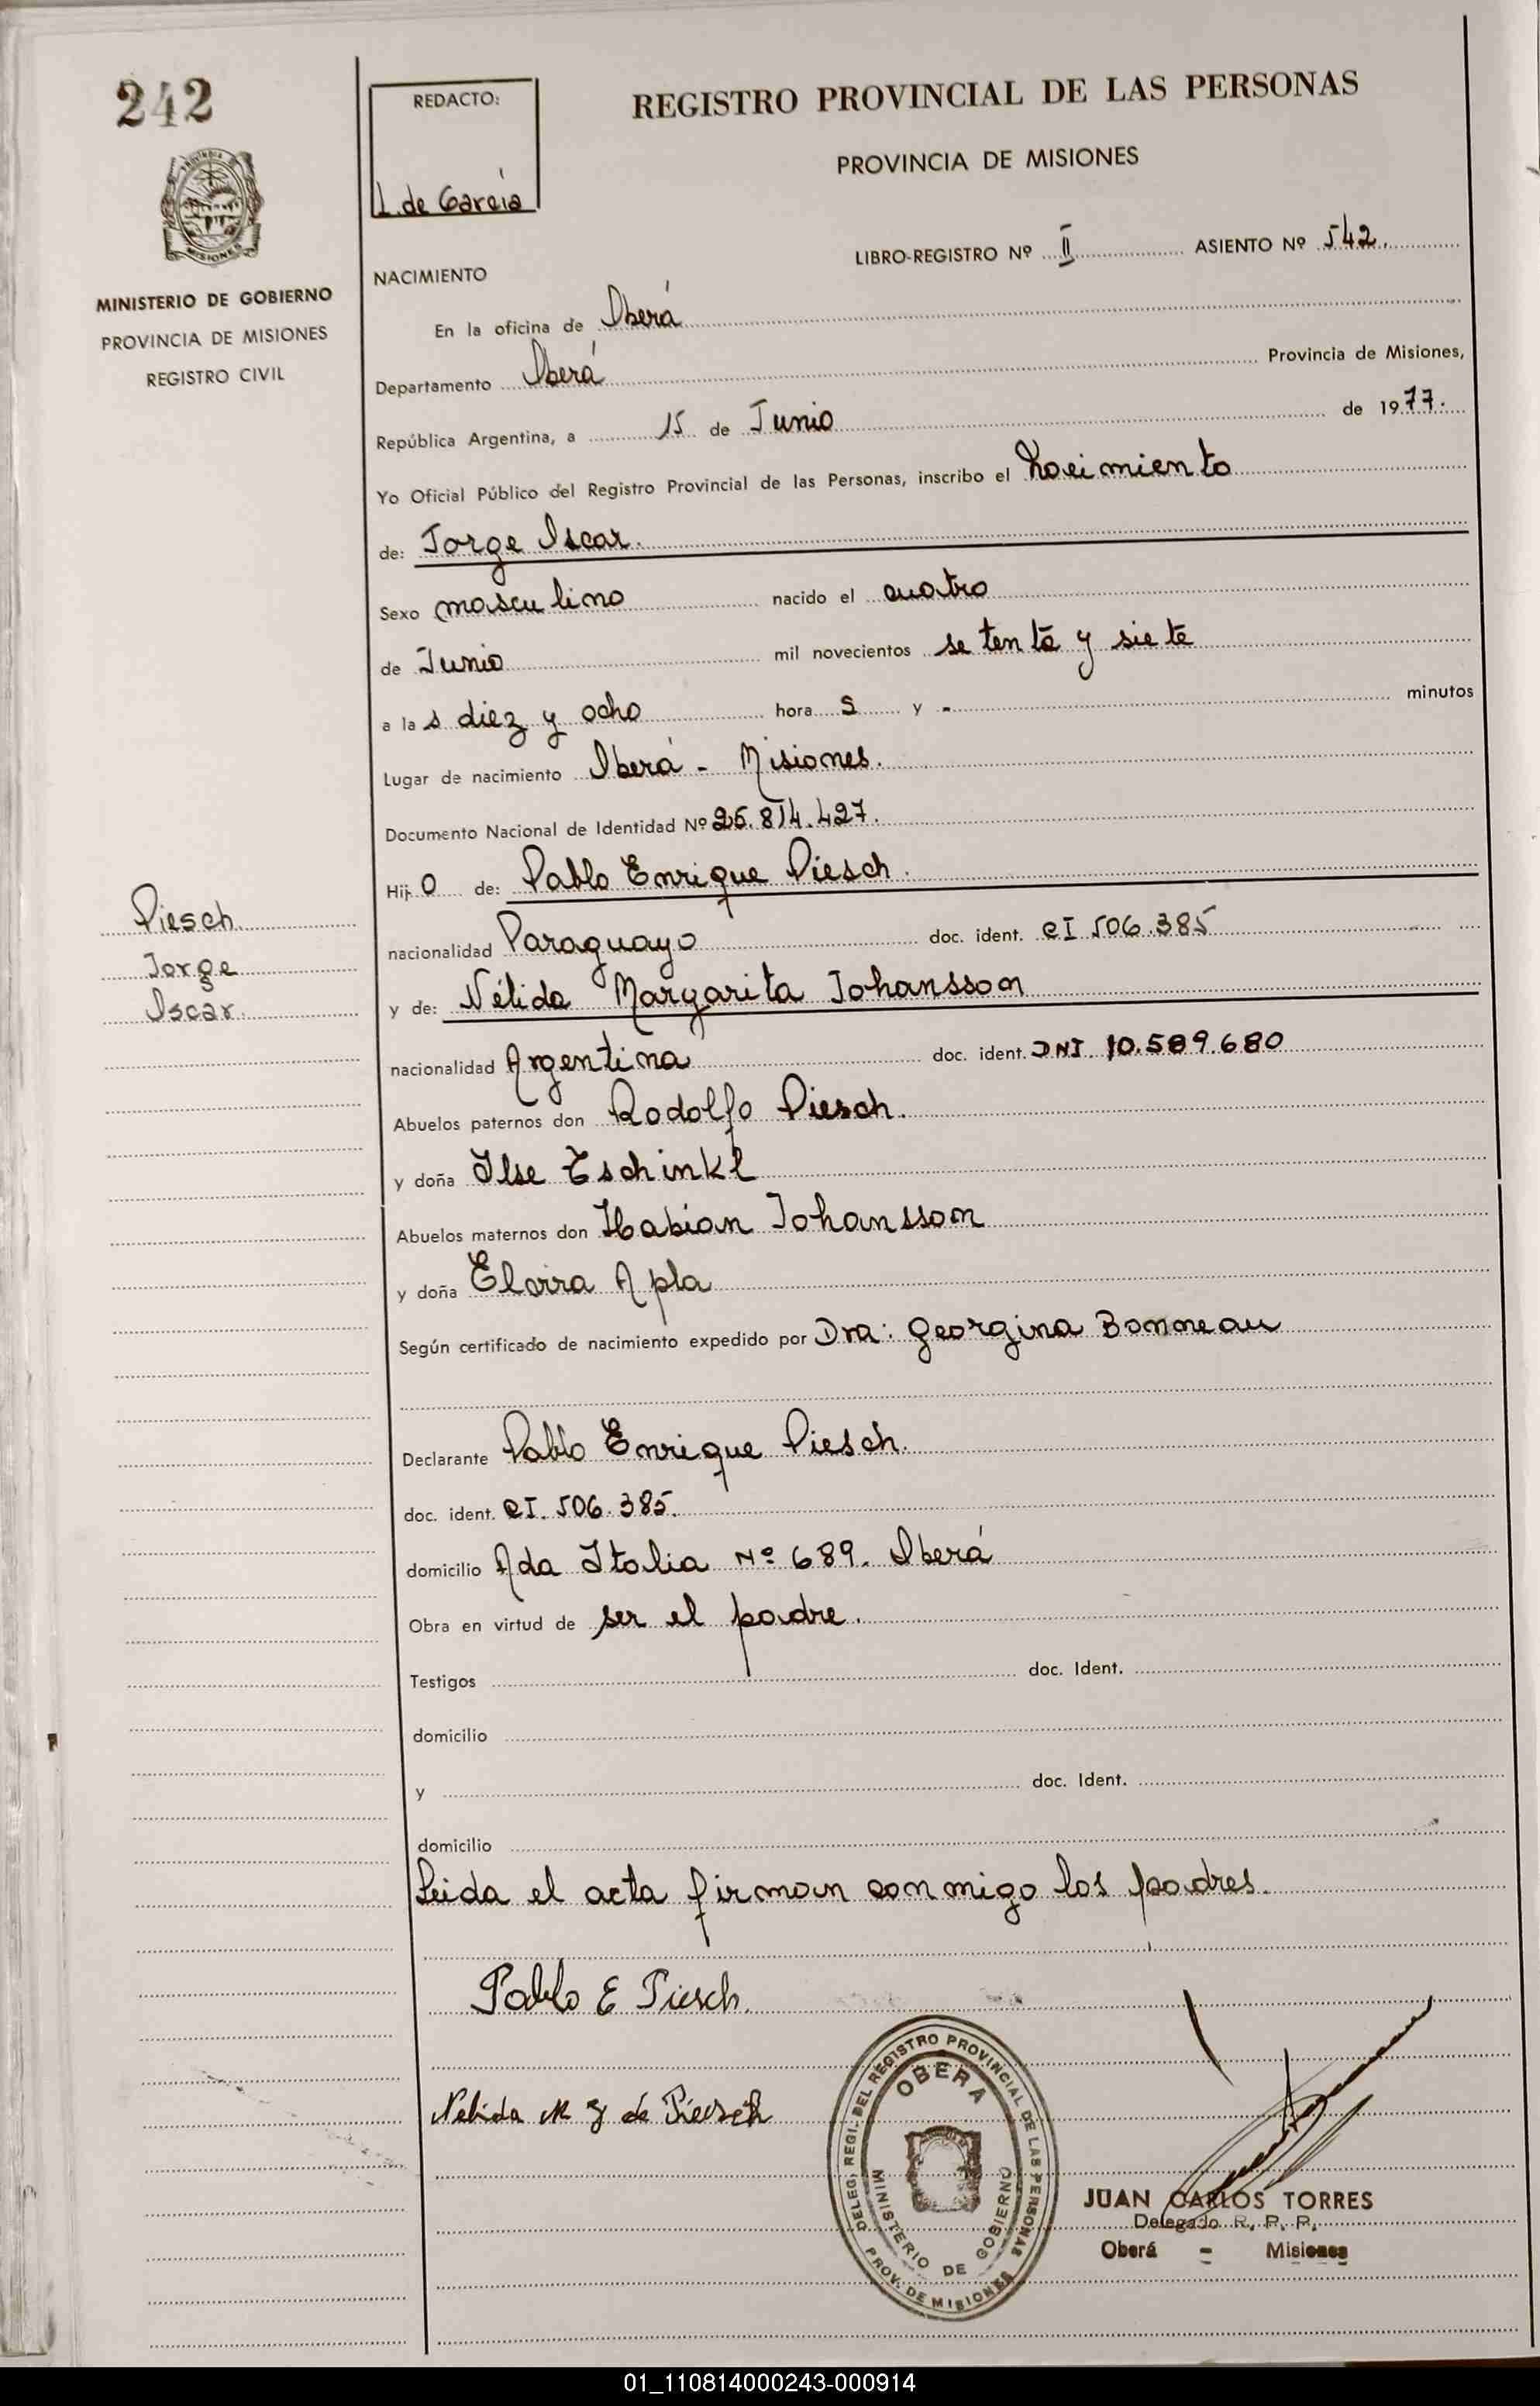 242
REDACTO:
L. de García
REGISTRO PROVINCIAL DE LAS PERSONAS
PROVINCIA DE MISIONES
MINISTERIO DE GOBIERNO
PROVINCIA DE MISIONES
REGISTRO CIVIL
LIBRO-REGISTRO Nº II ASIENTO Nº 542.
NACIMIENTO
En la oficina de Oberá
Departamento Oberá Provincia de Misiones,
República Argentina, a 15 de Junio de 1977.
Yo Oficial Público del Registro Provincial de las Personas, inscribo el Nacimiento
de: Jorge Oscar.
Sexo masculino nacido el cuatro
de Junio mil novecientos setenta y siete
a las diez y ocho hora s y - minutos
Lugar de nacimiento Oberá - Misiones.
Documento Nacional de Identidad Nº 25.814.427.
Hijo de: Pablo Enrique Piesch.
nacionalidad Paraguayo doc. ident. CI 506.385
y de: Nélida Margarita Johansson
nacionalidad Argentina doc. ident. DNI 10.589.680
Piesch
Jorge
Oscar.
Abuelos paternos don Rodolfo Piesch.
y doña Ilse Eschinkl
Abuelos maternos don Habian Johansson
y doña Elvira Apla
Según certificado de nacimiento expedido por Dra: Georgina Bonneau
Declarante Pablo Enrique Piesch.
doc. ident. CI. 506.385.
domicilio Ada Italia Nº 689. Oberá
Obra en virtud de ser el padre.
Testigos doc. Ident.
domicilio
y doc. Ident.
domicilio
Leida el acta firman conmigo los padres.
Pablo E Piesch.
Nelida M J de Piesch
DELEG. REGI. DEL REGISTRO PROVINCIAL DE LAS PERSONAS
OBERA
MINISTERIO DE GOBIERNO
PROV. DE MISIONES
JUAN CARLOS TORRES
Delegado R. P. P.
Oberá - Misiones
01_110814000243-000914